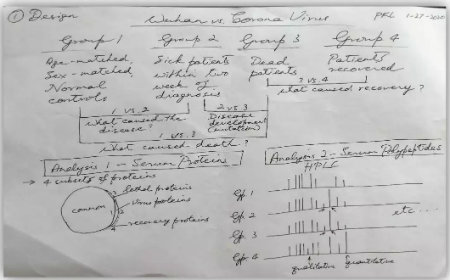 ① Design
Wuhan vs. Corona Virus
PKL 1-27-2020
Group 1
Group 2
Group 3
Group 4
Age-matched,
Sex-matched,
Normal
controls
Sick patients
within two
week of
diagnosis
Dead
patients
Patients
recovered
2 vs. 4
what caused recovery?
1 vs. 2
What caused the
disease?
2 vs 3
Disease
development
(mutation)
1 vs. 3
What caused death?
Analysis 1 - Serum Proteins
→ 4 subsets of proteins
common
lethal proteins
virus proteins
recovery proteins
Analysis 2 - Serum Polypeptides
HPLC
Gp. 1
Gp. 2
Gp. 3
Gp. 4
etc....
qualitative
quantitative